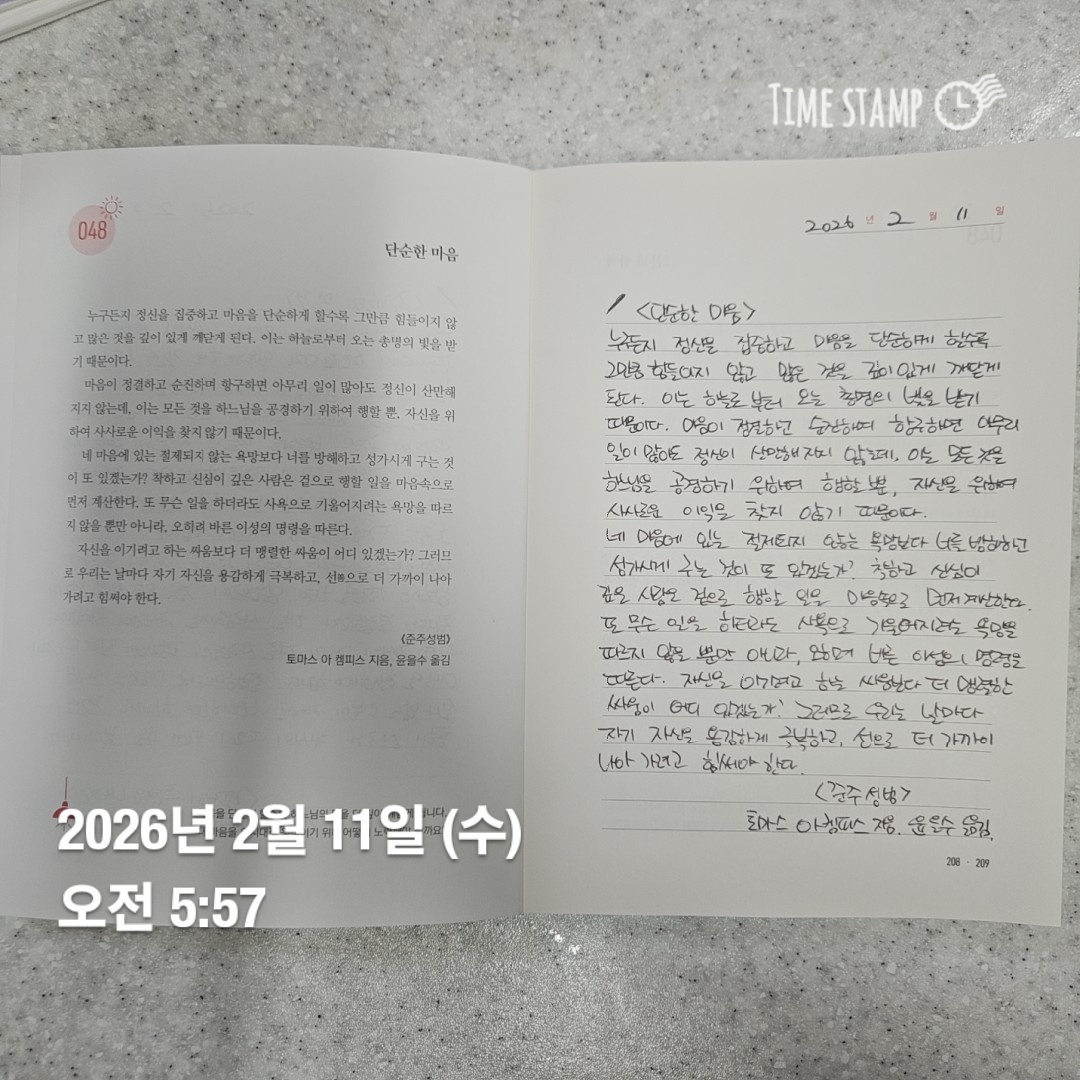 TIME STAMP
048
단순한 마음
누구든지 정신을 집중하고 마음을 단순하게 할수록 그만큼 힘들이지 않
고 많은 것을 깊이 있게 깨닫게 된다. 이는 하늘로부터 오는 총명의 빛을 받
기 때문이다.
마음이 정결하고 순진하며 항구하면 아무리 일이 많아도 정신이 산만해
지지 않는데, 이는 모든 것을 하느님을 공경하기 위하여 행할 뿐, 자신을 위
하여 사사로운 이익을 찾지 않기 때문이다.
네 마음에 있는 절제되지 않는 욕망보다 너를 방해하고 성가시게 구는 것
이 또 있겠는가? 착하고 신심이 깊은 사람은 겉으로 행할 일을 마음속으로
먼저 계산한다. 또 무슨 일을 하더라도 사욕으로 기울어지려는 욕망을 따르
지 않을 뿐만 아니라, 오히려 바른 이성의 명령을 따른다.
자신을 이기려고 하는 싸움보다 더 맹렬한 싸움이 어디 있겠는가? 그러므
로 우리는 날마다 자기 자신을 용감하게 극복하고, 선善으로 더 가까이 나아
가려고 힘써야 한다.
《준주성범》
토마스 아 켐피스 지음, 윤을수 옮김
2026년 2월 11일 (수)
오전 5:57
2026 년 2 월 11 일
<단순한 마음>
누구든지 정신을 집중하고 마음을 단순하게 할수록
그만큼 힘들이지 않고 많은 것을 깊이 있게 깨닫게
된다. 이는 하늘로 부터 오는 총명의 빛을 받기
때문이다. 마음이 정결하고 순진하며 항구하면 아무리
일이 많아도 정신이 산만해지지 않는데, 이는 모든 것을
하느님을 공경하기 위하여 행할 뿐, 자신을 위하여
사사로운 이익을 찾지 않기 때문이다.
네 마음에 있는 절제되지 않는 욕망보다 너를 방해하고
성가시게 구는 것이 또 있겠는가? 착하고 신심이
깊은 사람은 겉으로 행할 일을 마음속으로 먼저 계산한다.
또 무슨 일을 하더라도 사욕으로 기울어지려는 욕망을
따르지 않을 뿐만 아니라, 오히려 바른 이성의 명령을
따른다. 자신을 이기려고 하는 싸움보다 더 맹렬한
싸움이 어디 있겠는가? 그러므로 우리는 날마다
자기 자신을 용감하게 극복하고, 선으로 더 가까이
나아 가려고 힘써야 한다.
<준주성범>
토마스 아 켐피스 지음, 윤을수 옮김.
208 · 209